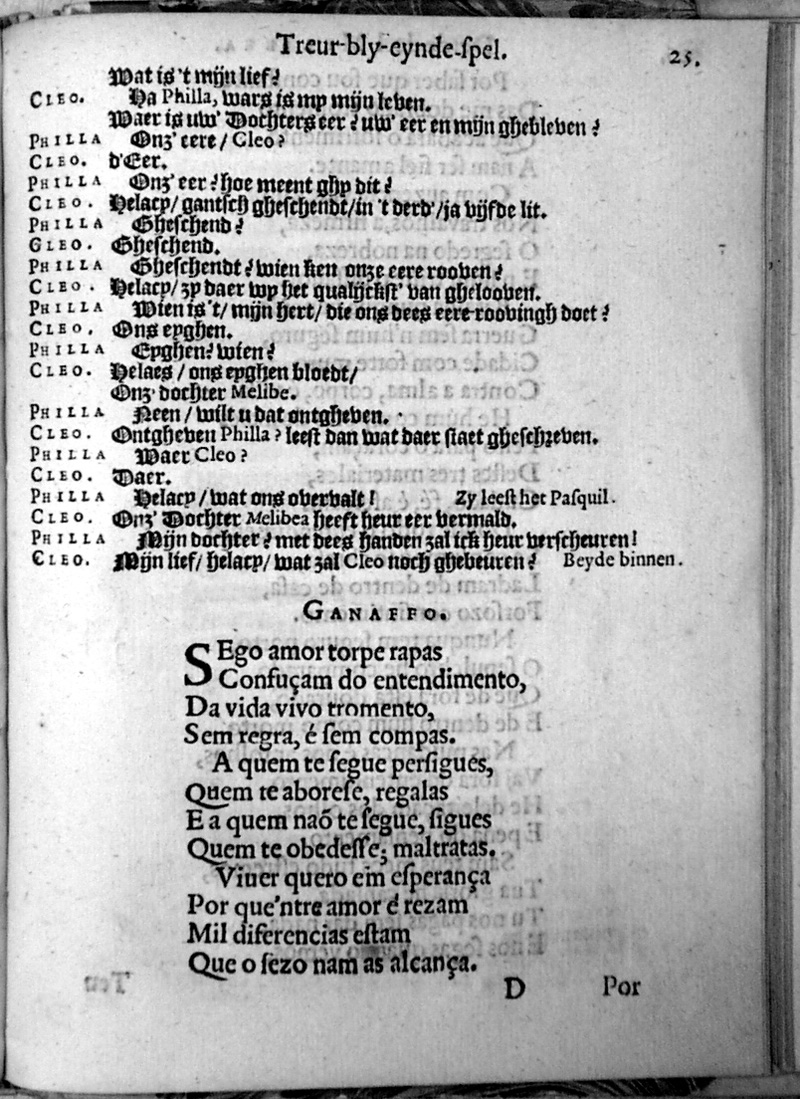 Treur-bly-eynde-ſpel. 25.
Wat is 't mijn lief?
CLEO. Ha Philla, wars is my mijn leven.
Waer is uw' Dochters eer? uw' eer en mijn ghebleven?
PHILLA Onz' eere/ Cleo?
CLEO. d'Eer.
PHILLA Onz' eer? hoe meent ghy dit?
CLEO. Helacy/ gantſch gheſchendt/ in 't derd'/ ja vijfde lit.
PHILLA Gheſchend?
GLEO. Gheſchend.
PHILLA Gheſchendt? wien ken onze eere rooven?
CLEO. Helacy/ zy daer wy het qualijckſt' van ghelooven.
PHILLA Wien is 't/ mijn hert/ die ons dees eere-roovingh doet?
CLEO. Ons eyghen.
PHILLA Eyghen? wien?
CLEO. Helaes/ ons eyghen bloedt/
Onz' dochter Melibe.
PHILLA Neen/ wilt u dat ontgheven.
CLEO. Ontgheven Philla? leeſt dan wat daer ſtaet gheſchꝛeven.
PHILLA Waer Cleo?
CLEO. Daer.
PHILLA Helacy/ wat ons overvalt! Zy leeſt het Paſquil.
CLEO. Onz' Dochter Melibea heeft heur eer vermald.
PHILLA Mijn dochter? met dees handen zal ick heur verſcheuren!
CLEO. Mijn lief/ helacy/ wat zal Cleo noch ghebeuren? Beyde binnen.
GANAFFO.
SEgo amor torpe rapas
Confuçam do entendimento,
Da vida vivo tromento,
Sem regra, é ſem compas.
A quem te ſegue perſigues,
Quem te aboreſe, regalas
E a quem naõ te ſegue, ſigues
Quem te obedeſſe; maltratas.
Viuer quero em eſperança
Por que'ntre amor é rezam
Mil diferencias eſtam
Que o ſezo nam as alcança.
D Por